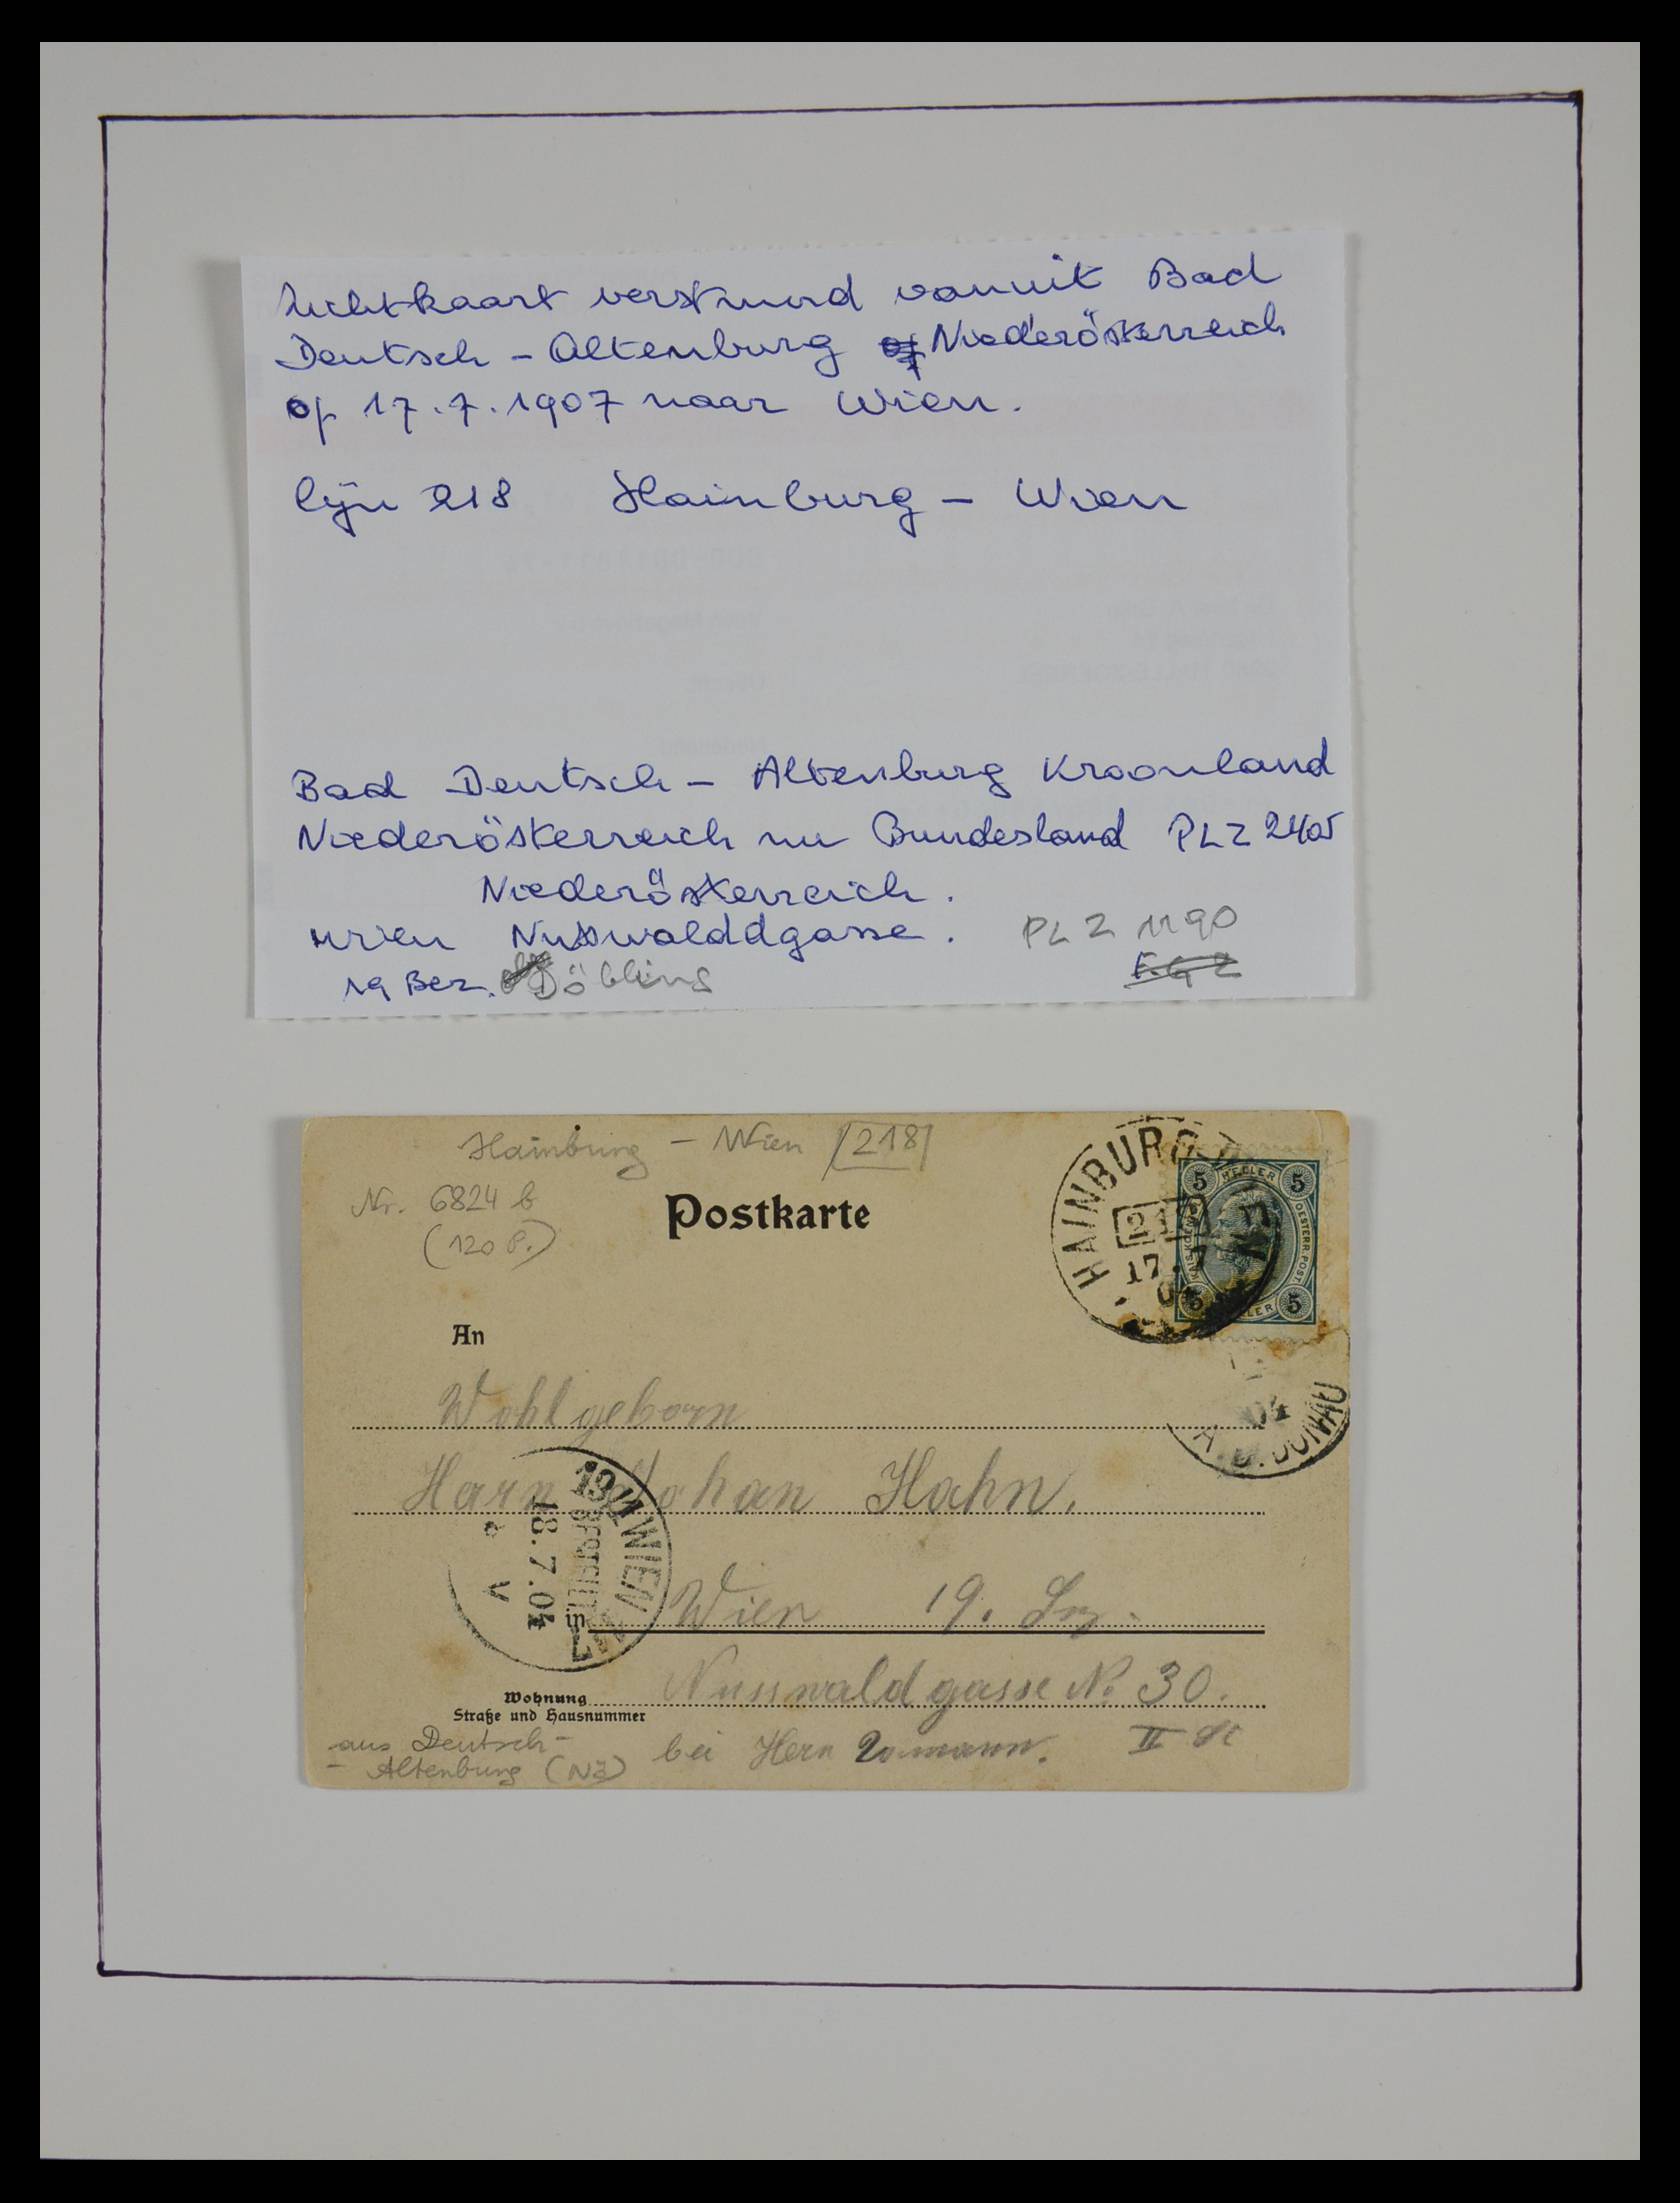 zichtkaart verstuurd vanuit Bad
Deutsch - Altenburg Niederösterreich
op 17.7.1907 naar Wien.
lijn 218 Hainburg - Wien
Bad Deutsch - Altenburg Kroonland
Niederösterreich nu Bundesland PLZ 2405
Niederösterreich.
Wien Nusswalddgasse. PLZ 1190
19 Bez. Döbling
Hainburg - Wien 218
Nr. 6824 b
(120 P.)
Postkarte
HAINBURG
218
17.7
04
5 HELLER 5
KAIS. KÖN. OESTERR. POST
5 HELLER 5
04
A. D. DONAU
An
Wohlgeborn
Herrn Johan Hahn.
19/1 WIEN
BESTELLT
18.7.04
V
in Wien 19.
Wohnung
Straße und Hausnummer
Nusswaldgasse No 30.
bei Herrn
II
aus Deutsch-
- Altenburg (NÖ)